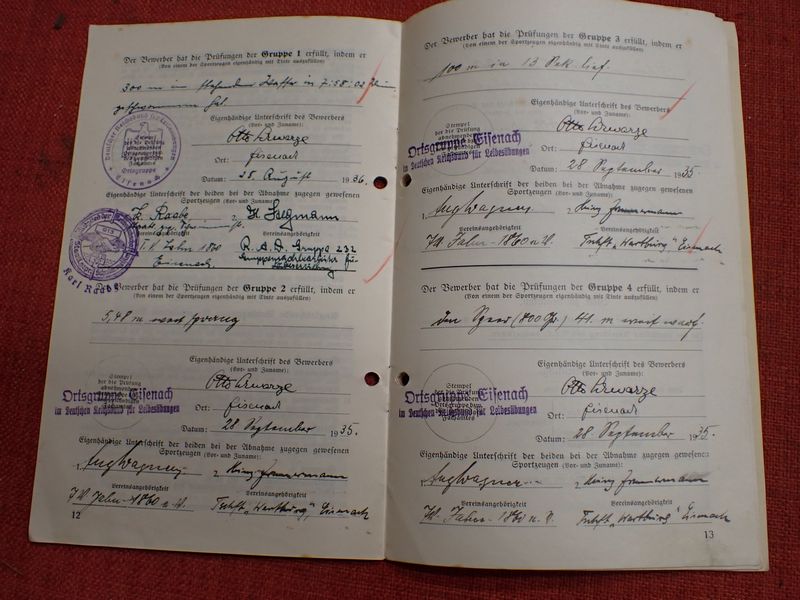 Der Bewerber hat die Prüfungen der Gruppe 1 erfüllt, indem er
(Von einem der Sportzeugen eigenhändig mit Tinte auszufüllen)
300 m in stehendem Wasser in 7:58:02 Min
geschwommen hat
Eigenhändige Unterschrift des Bewerbers
(Vor- und Zuname):
Otto Schwarze
Ort: Eisenach
Datum: 25. August 1936.
Eigenhändige Unterschrift der beiden bei der Abnahme zugegen gewesenen
Sportzeugen (Vor- und Zuname):
K. Raabe 2.
Vereinsangehörigkeit Vereinsangehörigkeit
T.V. Jahn 1860 R.A.D. Gruppe 232
Eisenach
Karl Raabe
Der Bewerber hat die Prüfungen der Gruppe 2 erfüllt, indem er
(Von einem der Sportzeugen eigenhändig mit Tinte auszufüllen)
5,48 m weit sprang
Eigenhändige Unterschrift des Bewerbers
(Vor- und Zuname):
Stempel
der die Prüfung
abnehmenden
Ortsgruppe Eisenach
im Deutschen Reichsbund für Leibesübungen
Otto Schwarze
Ort: Eisenach
Datum: 28 September 1935.
Eigenhändige Unterschrift der beiden bei der Abnahme zugegen gewesenen
Sportzeugen (Vor- und Zuname):
Aug Wagner 2.
Vereinsangehörigkeit Vereinsangehörigkeit
Jahn 1860 "Wartburg", Eisenach
12
Der Bewerber hat die Prüfungen der Gruppe 3 erfüllt, indem er
(Von einem der Sportzeugen eigenhändig mit Tinte auszufüllen)
100 m in 13 Sek. lief.
Eigenhändige Unterschrift des Bewerbers
(Vor- und Zuname):
Stempel
der die Prüfung
abnehmenden
Ortsgruppe Eisenach
im Deutschen Reichsbund für Leibesübungen
Otto Schwarze
Ort: Eisenach
Datum: 28 September 1935
Eigenhändige Unterschrift der beiden bei der Abnahme zugegen gewesenen
Sportzeugen (Vor- und Zuname):
1. Aug Wagner 2.
Vereinsangehörigkeit Vereinsangehörigkeit
Jahn-1860 "Wartburg" Eisenach
Der Bewerber hat die Prüfungen der Gruppe 4 erfüllt, indem er
(Von einem der Sportzeugen eigenhändig mit Tinte auszufüllen)
den Speer (800 Gr.) 41. m weit warf.
Eigenhändige Unterschrift des Bewerbers
(Vor- und Zuname):
Stempel
der die Prüfung
abnehmenden
Ortsgruppe Eisenach
im Deutschen Reichsbund für Leibesübungen
Otto Schwarze
Ort: Eisenach
Datum: 28 September 1935.
Eigenhändige Unterschrift der beiden bei der Abnahme zugegen gewesenen
Sportzeugen (Vor- und Zuname):
Aug Wagner 2.
Vereinsangehörigkeit Vereinsangehörigkeit
Jahn-1860 "Wartburg" Eisenach
13